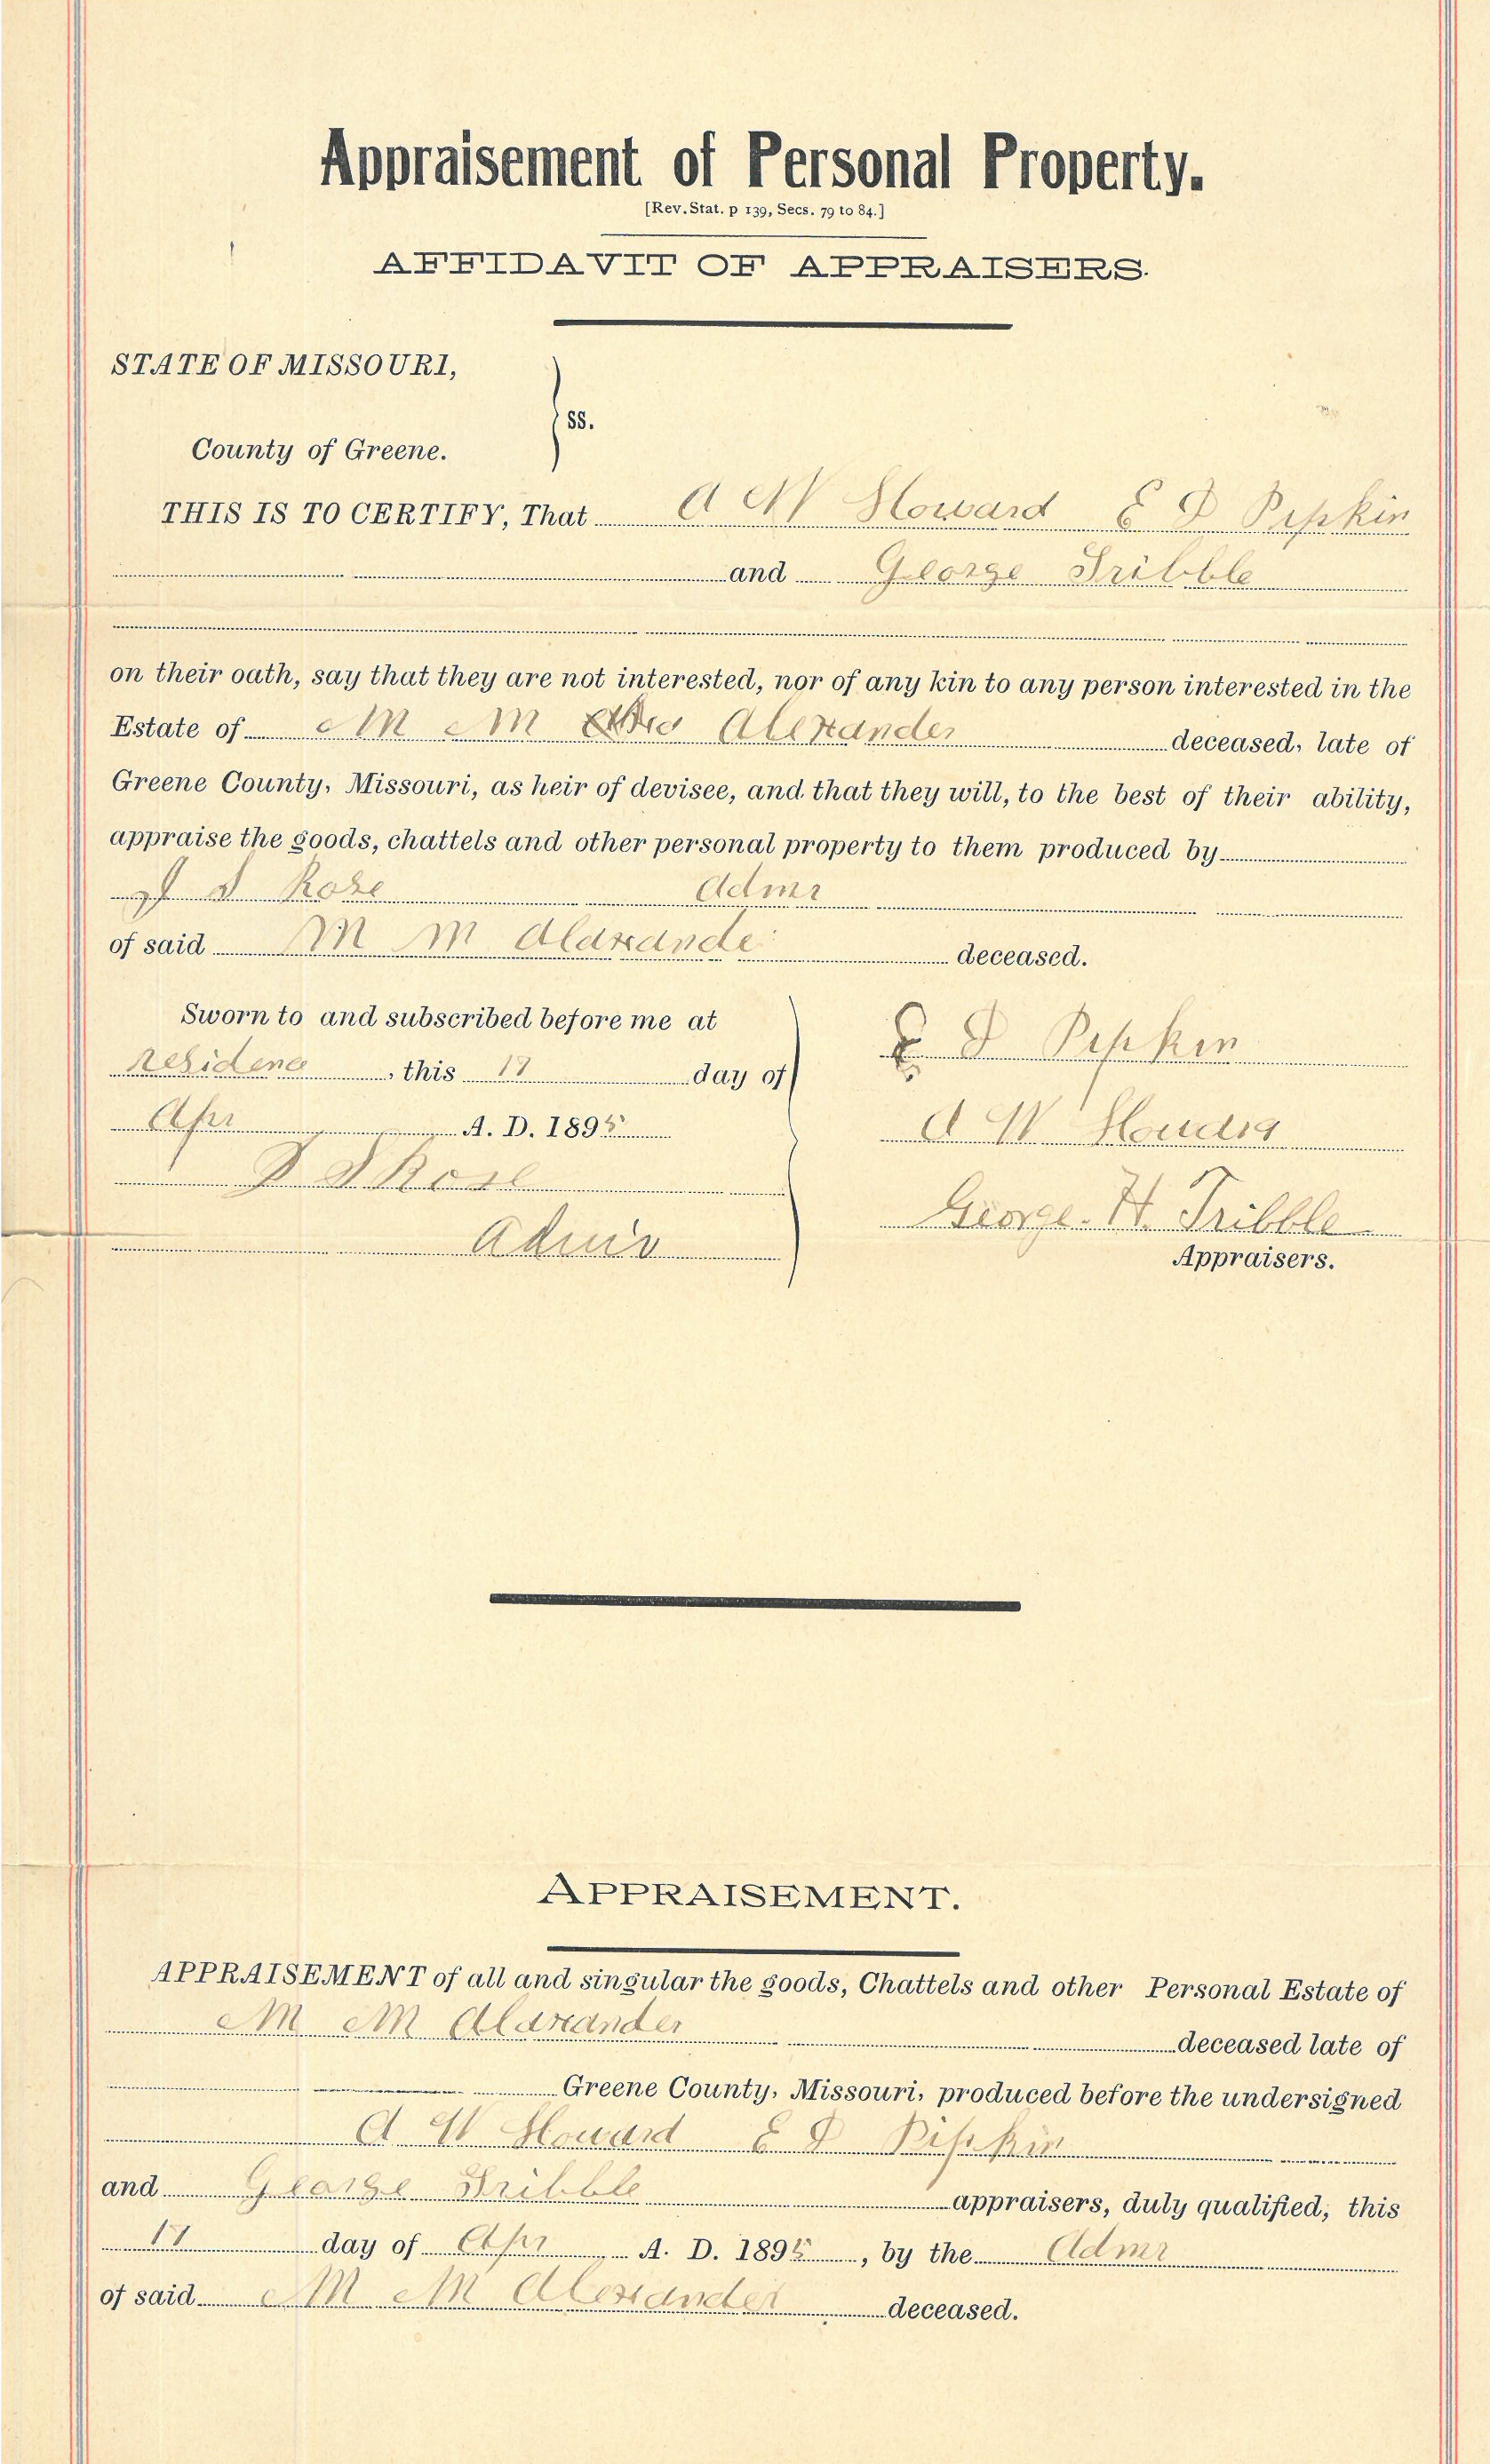 Appraisement of Personal Property.
[Rev. Stat. p 139, Secs. 79 to 84.]
AFFIDAVIT OF APPRAISERS.
STATE OF MISSOURI,
ss.
County of Greene.
THIS IS TO CERTIFY, That A W Howard E D Pipkin
and George Tribble
on their oath, say that they are not interested, nor of any kin to any person interested in the
Estate of M M Alexander deceased, late of
Greene County, Missouri, as heir of devisee, and that they will, to the best of their ability,
appraise the goods, chattels and other personal property to them produced by
Rose Admr
of said M M Alaxande deceased.
Sworn to and subscribed before me at
residence, this 17 day of
Apr A. D. 1895
Rose
Admr
E D Pipkin
A W Howard
George H. Tribble
Appraisers.
APPRAISEMENT.
APPRAISEMENT of all and singular the goods, Chattels and other Personal Estate of
M M Alaxander deceased late of
Greene County, Missouri, produced before the undersigned
A W Howard E D Pipkin
and George Tribble appraisers, duly qualified, this
17 day of Apr A. D. 1895, by the Admr
of said M M Alexander deceased.